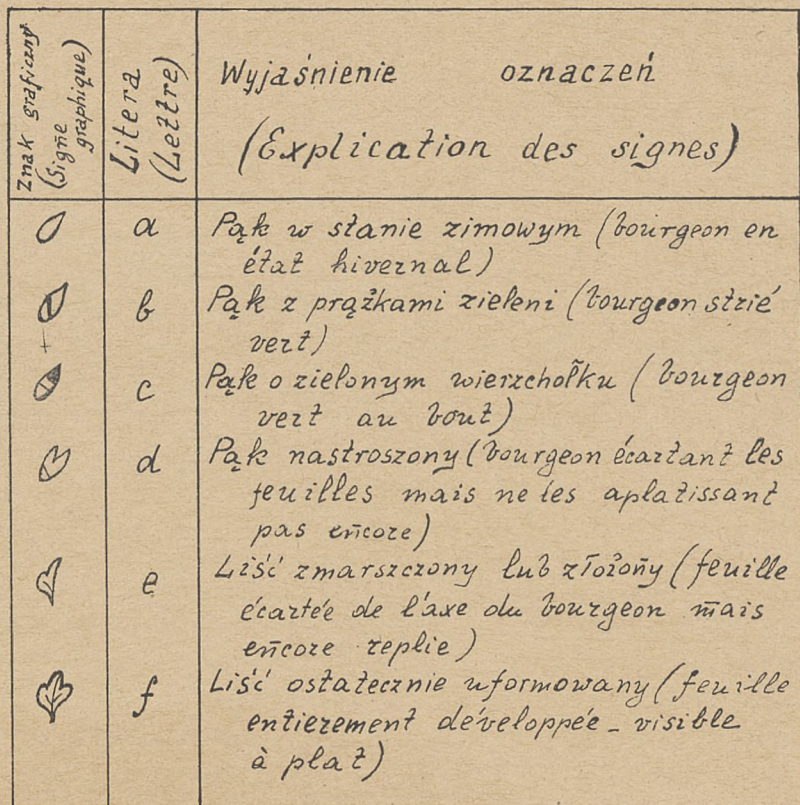 Znak graficzny
(Signe
graphique)
Litera
(Lettre)
Wyjaśnienie oznaczeń
(Explication des signes)
a Pąk w stanie zimowym (bourgeon en
état hivernal)
b Pąk z prążkami zieleni (bourgeon strié
vert)
c Pąk o zielonym wierzchołku (bourgeon
vert au bout)
d Pąk nastroszony (bourgeon écartant les
feuilles mais ne les aplatissant
pas encore)
e Liść zmarszczony lub złożony (feuille
écartée de l'axe du bourgeon mais
encore replie)
f Liść ostatecznie uformowany (feuille
entierement développée - visible
à plat)